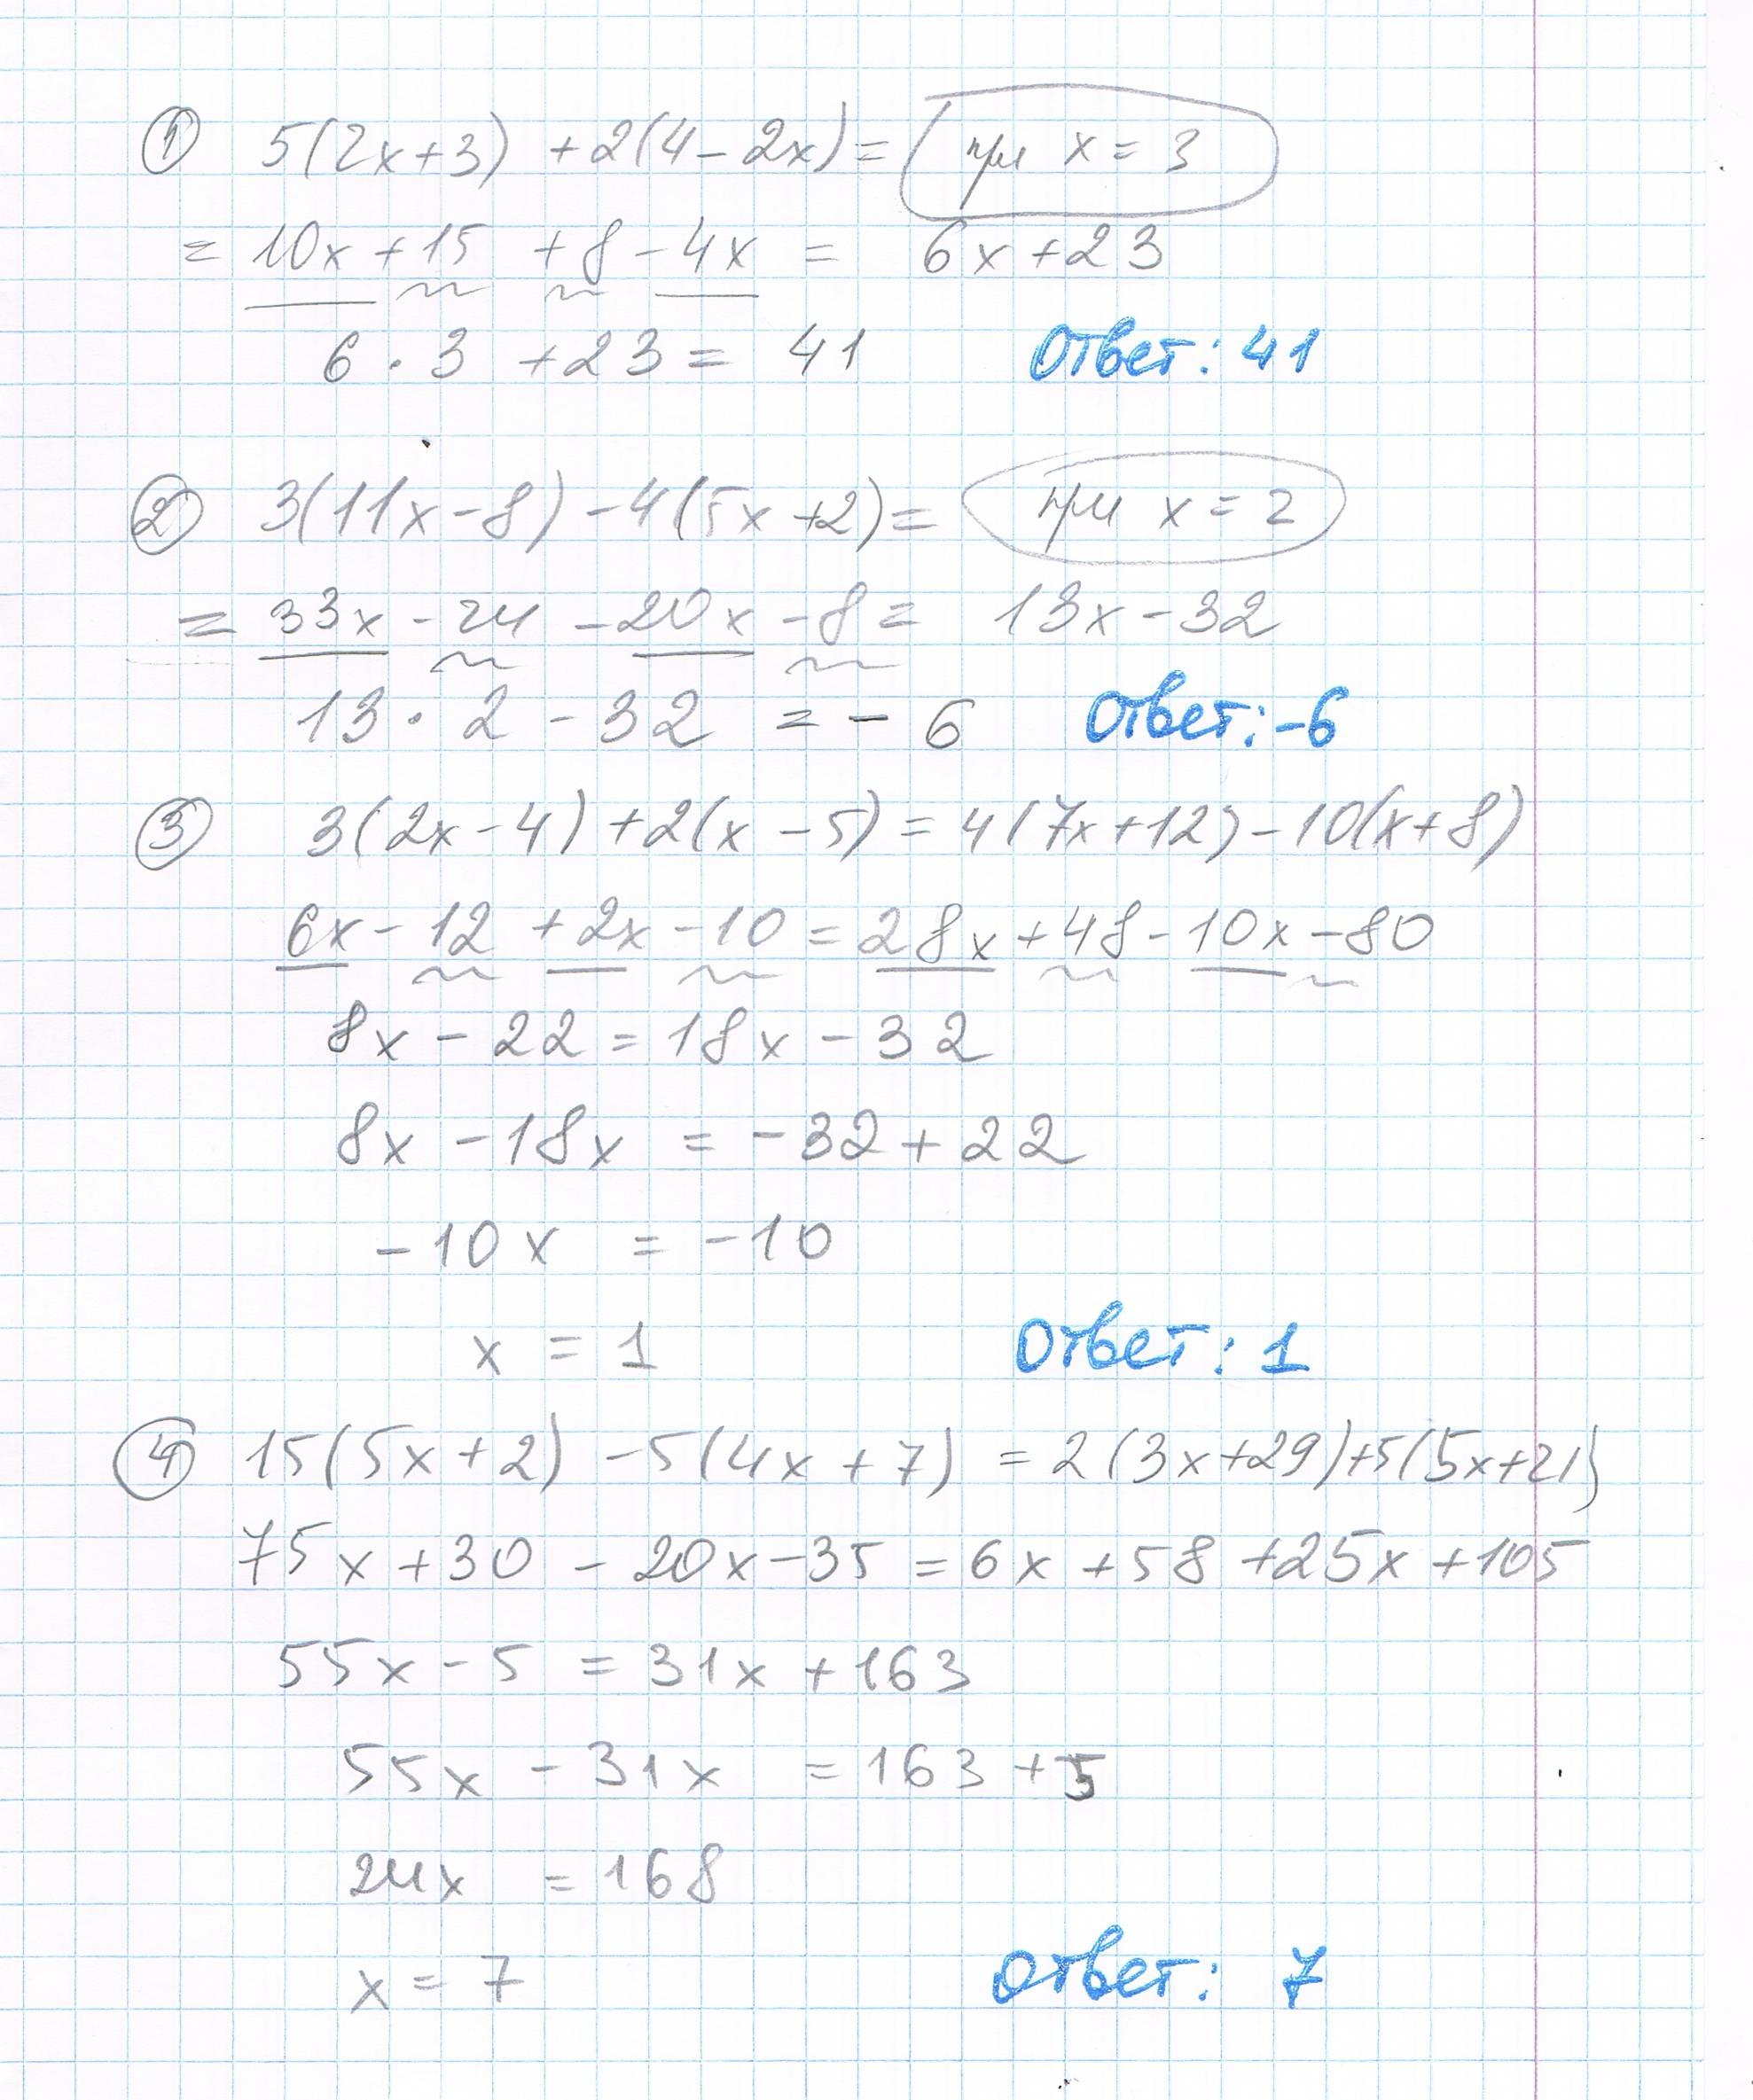 ① 5(2x+3) +2(4-2x)= при x=3
= 10x+15 +8-4x = 6x+23
6·3 +23= 41 Ответ: 41
② 3(11x-8)-4(5x+2)= при x=2
= 33x-24 -20x-8= 13x-32
13·2-32 =-6 Ответ:-6
③ 3(2x-4)+2(x-5)=4(7x+12)-10(x+8)
6x-12+2x-10=28x+48-10x-80
8x-22=18x-32
8x-18x = -32+22
-10x = -10
x = 1 Ответ: 1
④ 15(5x+2) -5(4x+7) =2(3x+29)+5(5x+21)
75x+30 -20x-35=6x+58+25x+105
55x-5 =31x+163
55x-31x =163+5
24x =168
x=7 Ответ: 7